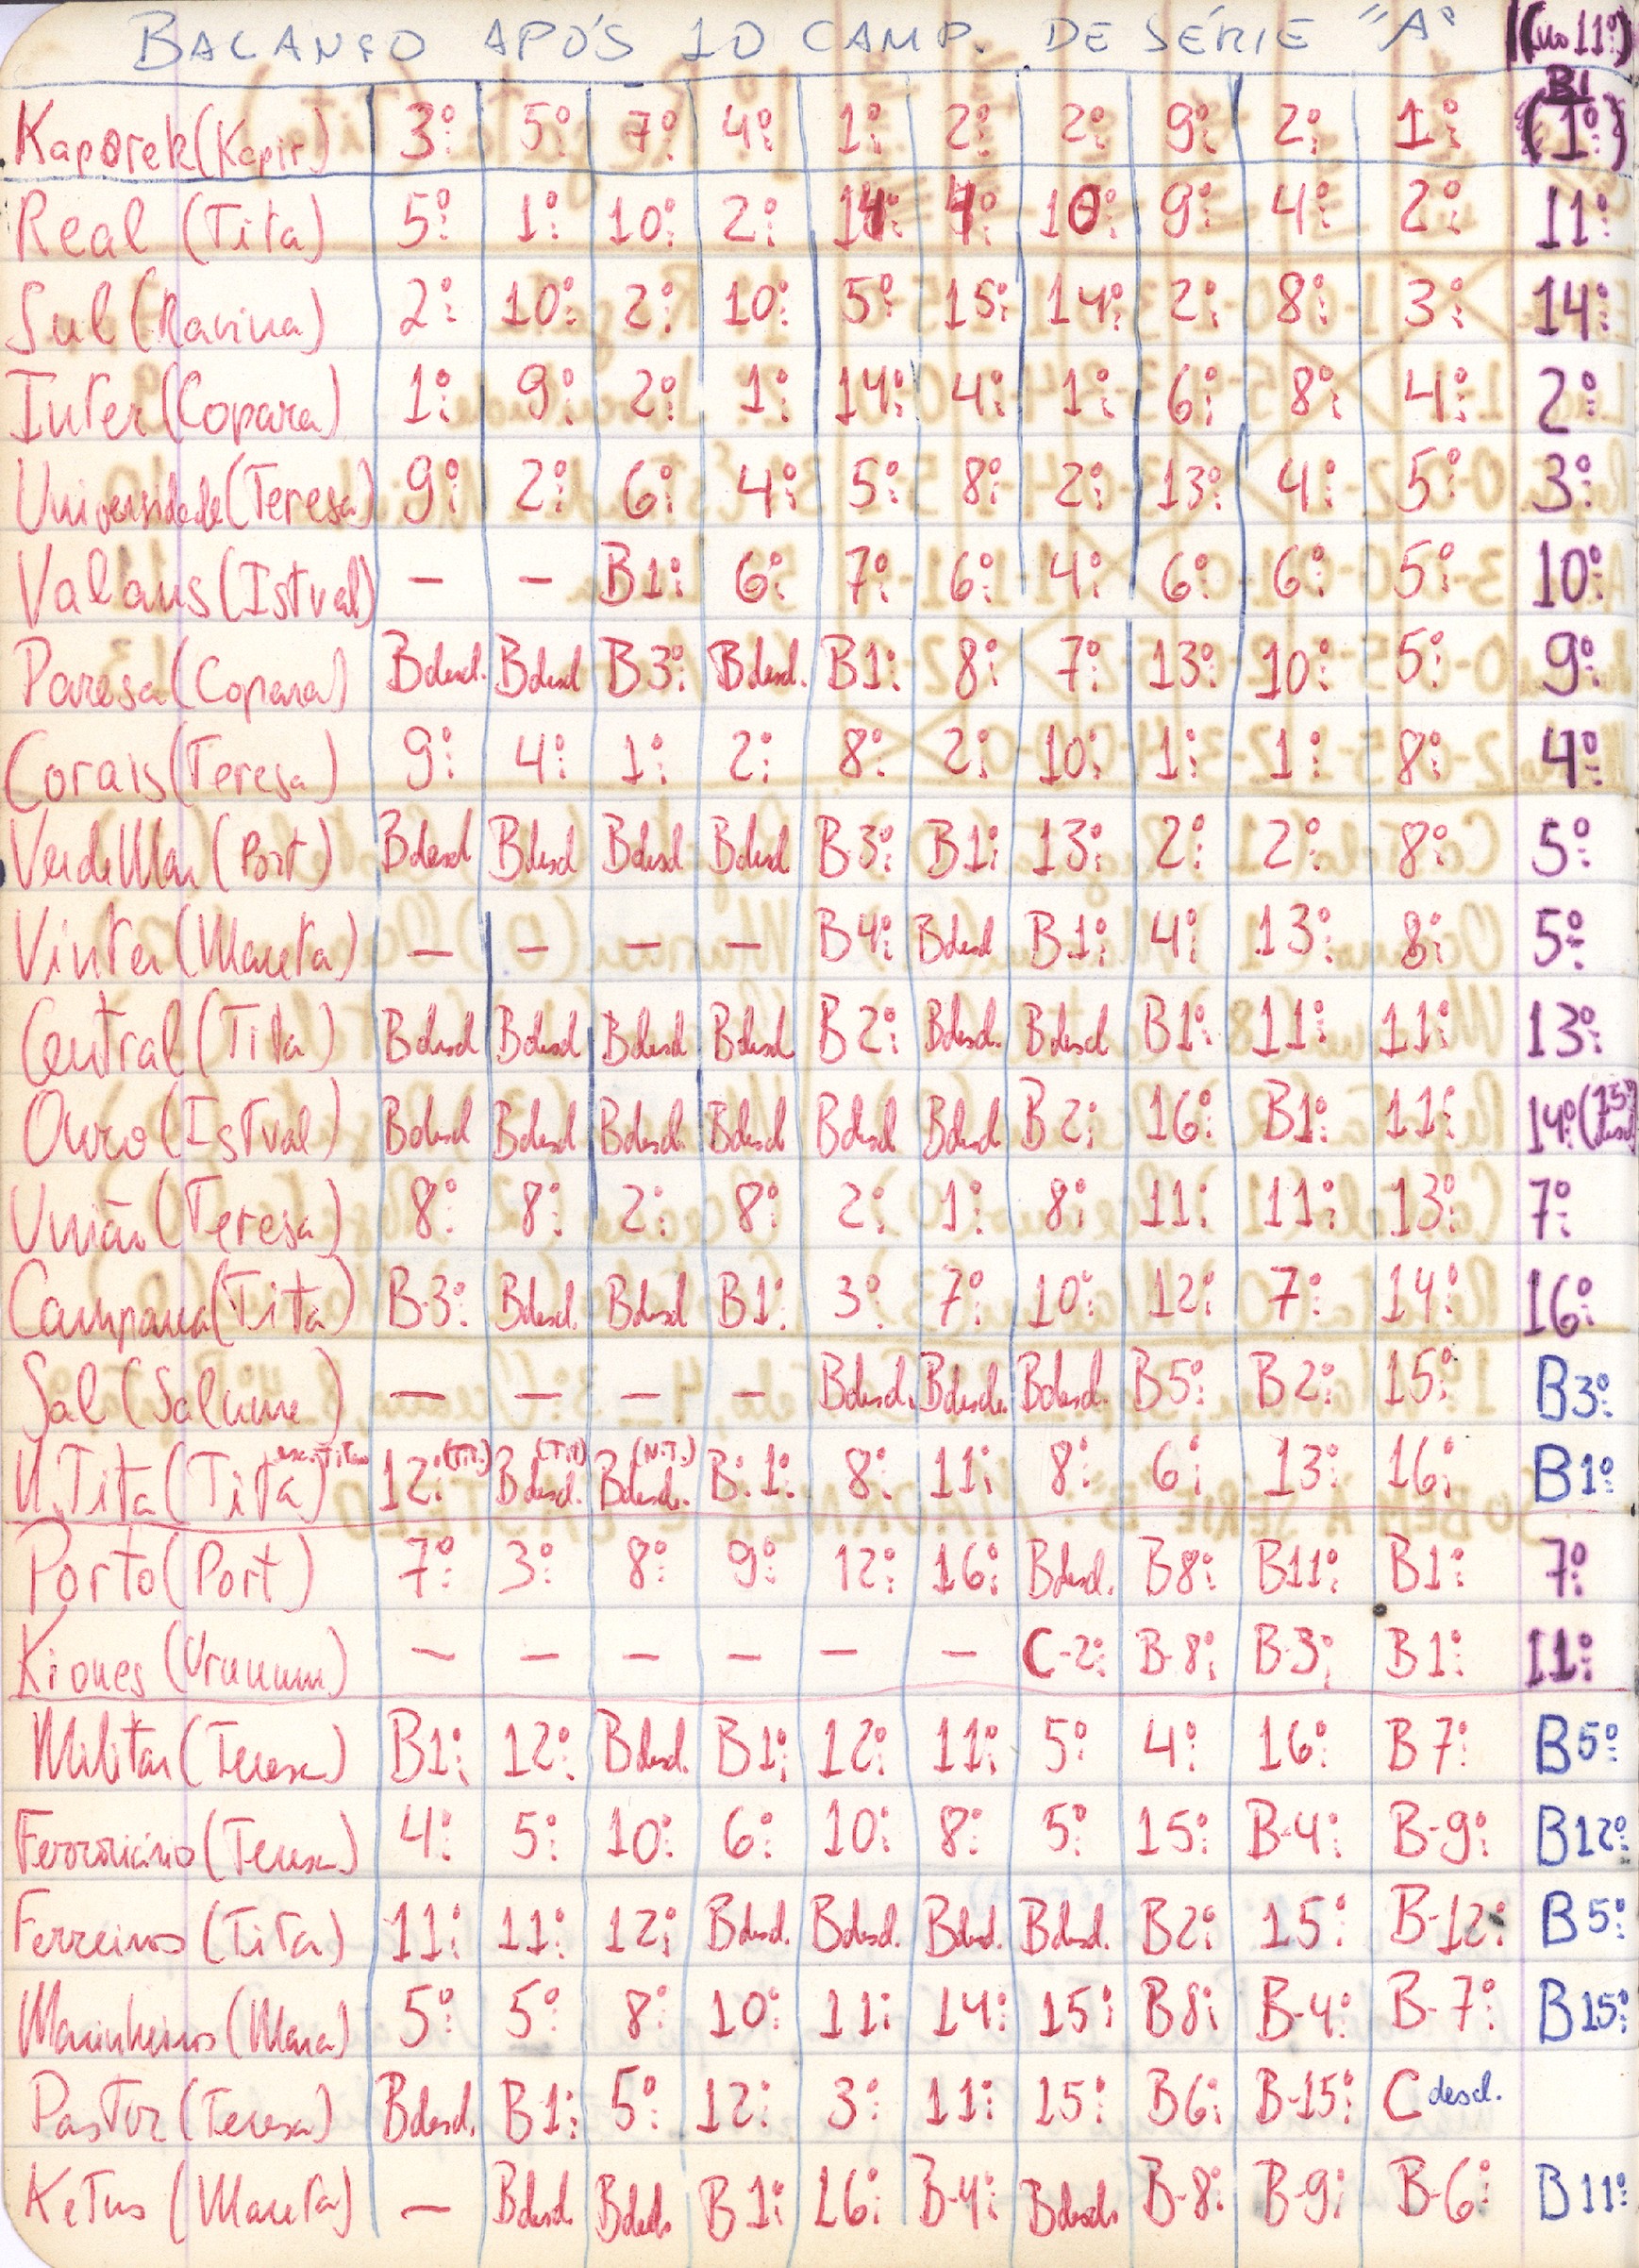 BALANÇO APÓS 10 CAMP. DE SÉRIE "A" (no 11º)
Kaporek (Kapir) 3º 5º 7º 4º 1º 2º 2º 9º 2º 1º B1 (1º)
Real (Tita) 5º 1º 10º 2º 14º 4º 10º 9º 4º 2º 11º
Sul (Ravina) 2º 10º 2º 10º 5º 15º 14º 2º 8º 3º 14º
Inter (Copara) 1º 9º 2º 1º 14º 4º 1º 6º 8º 4º 2º
Universidade (Teresa) 9º 2º 6º 4º 5º 8º 2º 13º 4º 5º 3º
Valans (Istval) — — B1º 6º 7º 6º 4º 6º 6º 5º 10º
Paresa (Copara) Bdescl. Bdescl B3º Bdescl. B1º 8º 7º 13º 10º 5º 9º
Corais (Teresa) 9º 4º 1º 2º 8º 2º 10º 1º 1º 8º 4º
VerdeMar (Port) Bdescl Bdescl Bdescl Bdescl B3º B1º 13º 2º 2º 8º 5º
Vinter (Maueta) — — — — B4º Bdescl B1º 4º 13º 8º 5º
Central (Tita) Bdescl Bdescl Bdescl Bdescl B2º Bdescl. Bdescl B1º 11º 11º 13º
Ouro (Istval) Bdescl Bdescl Bdescl. Bdescl Bdescl Bdescl B2º 16º B1º 11º 14º (15º descl)
União (Teresa) 8º 8º 2º 8º 2º 1º 8º 11º 11º 13º 7º
Campana (Tita) B-3º Bdescl. Bdescl B1º 3º 7º 10º 12º 7º 14º 16º
Sal (Salume) — — — — Bdescl. Bdescl. Bdescl. B5º B2º 15º B3º
U.Tita (Tita) 12º (Tit.) Bdescl. (Tit) Bdescl. (N.T.) B.1º 8º 11º 8º 6º 13º 16º B1º
Porto (Port) 7º 3º 8º 9º 12º 16º Bdescl. B8º B11º B1º 7º
Kiones (Urunum) — — — — — — C-2º B-8º B-3º B1º 11º
Militar (Teresa) B1º 12º Bdescl. B1º 12º 11º 5º 4º 16º B7º B5º
Ferroviário (Teresa) 4º 5º 10º 6º 10º 8º 5º 15º B-4º B-9º B12º
Ferreiros (Tita) 11º 11º 12º Bdescl. Bdescl. Bdescl. Bdescl. B2º 15º B-12º B5º
Marinheiros (Mara) 5º 5º 8º 10º 11º 14º 15º B8º B-4º B-7º B15º
Pastor (Teresa) Bdescl. B1º 5º 12º 3º 11º 15º B6º B-15º C descl.
Ketus (Maueta) — Bdescl. Bdescl. B1º 16º B-4º Bdescl. B-8º B-9º B-6º B11º